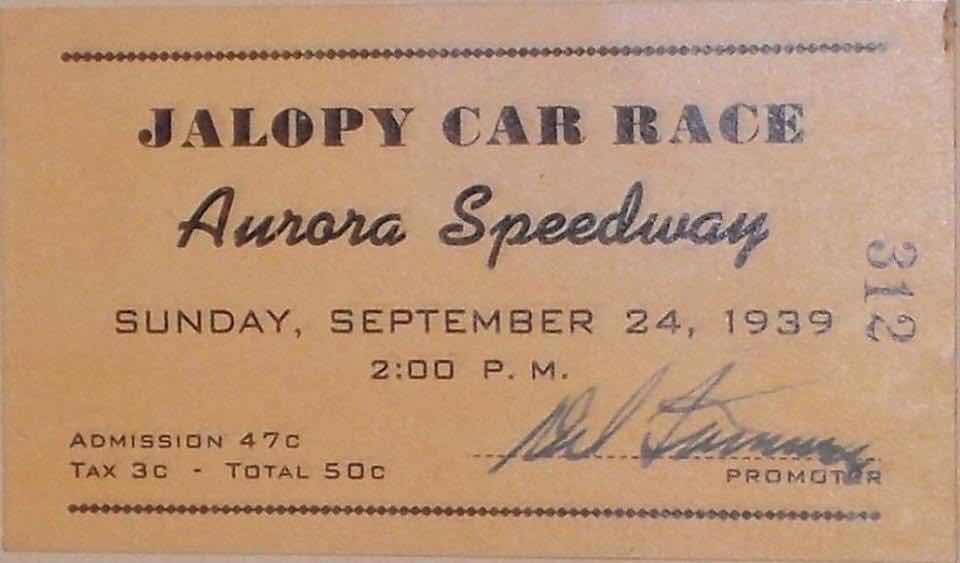 JALOPY CAR RACE
Aurora Speedway
312
SUNDAY, SEPTEMBER 24, 1939
2:00 P. M.
ADMISSION 47C
TAX 3C - TOTAL 50C
PROMOTER